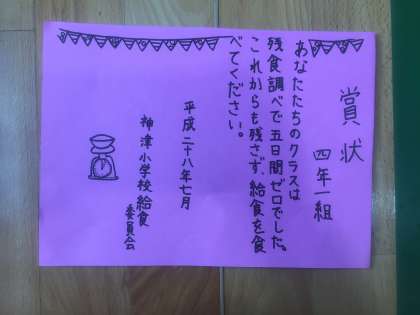 賞状
四年一組
あなたたちのクラスは
残食調べで五日間ゼロでした。
これからも残さず、給食を食
べてください。
平成二十八年七月
神津小学校給食
委員会